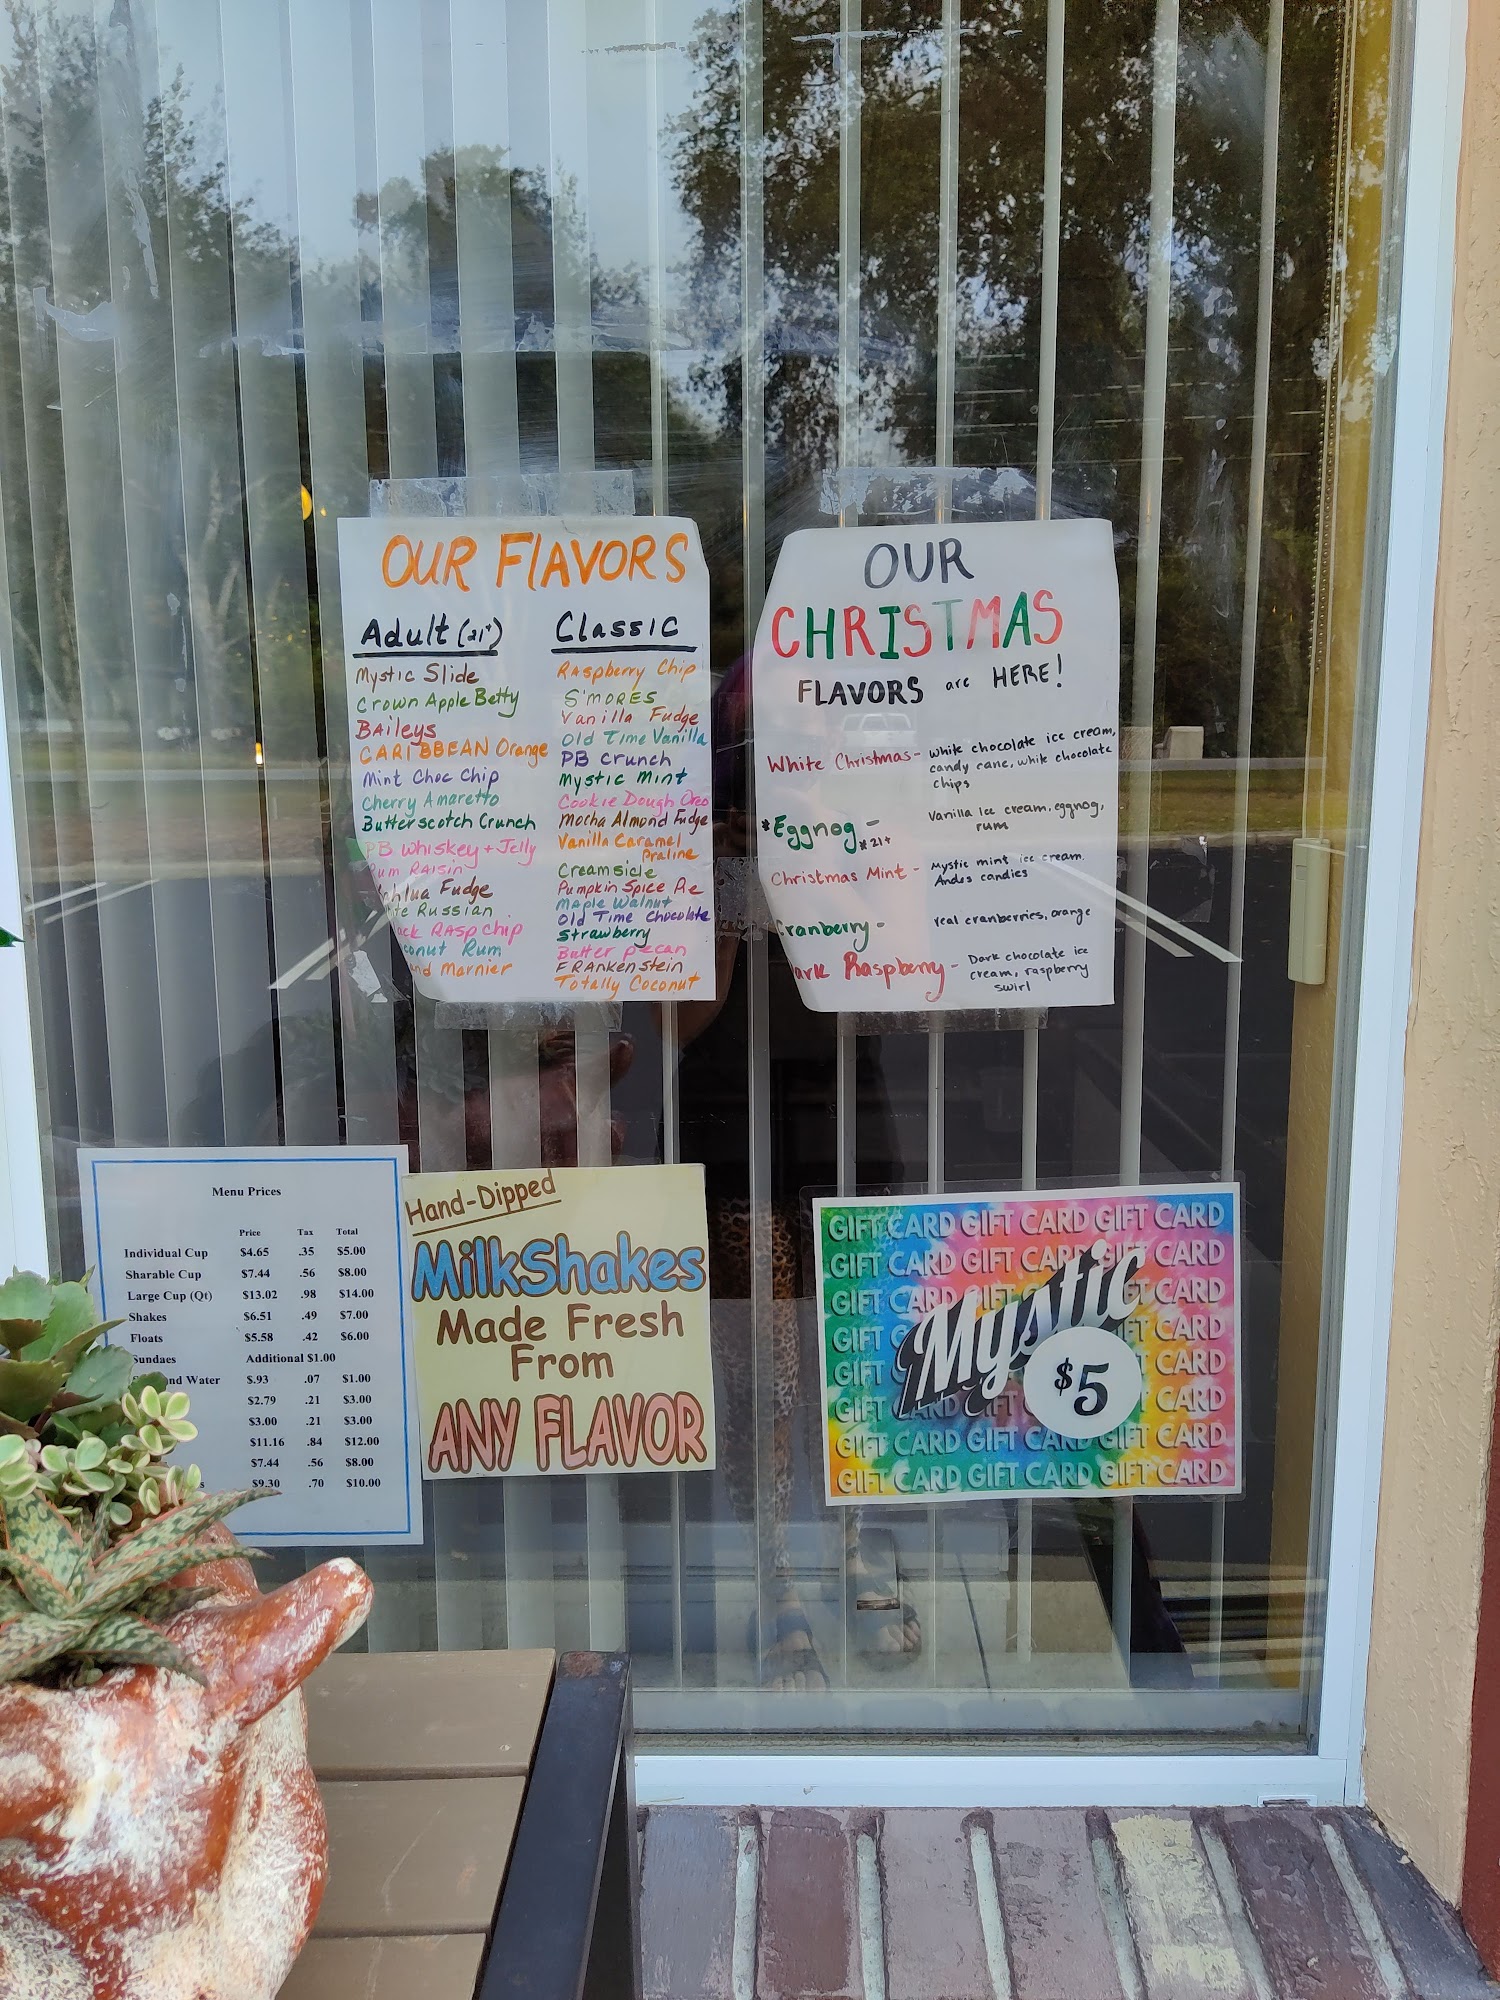 OUR FlAVORS
Adult (21+)
Mystic Slide
Crown Apple Betty
Baileys
CARIBBEAN Orange
Mint Choc Chip
Cherry Amaretto
Butterscotch Crunch
PB Whiskey + Jelly
Rum RAiSin
hlua Fudge
te Russian
ack RASp chip
conut Rum
nd Marnier
Classic
RAspberry Chip
S'MORES
Vanilla Fudge
Old Time Vanilla
PB Crunch
Mystic Mint
Cookie Dough Oreo
Mocha Almond Fudge
Vanilla Caramel
Praline
Creamsicle
Pumpkin Spice Pie
Maple Walnut
Old Time Chocolate
Strawberry
Butter pecan
FRAnkenstein
Totally Coconut
OUR
CHRISTMAS
FLAVORS are HERE!
White Christmas - White chocolate ice cream,
candy cane, white chocolate
chips
*Eggnog - Vanilla Ice cream, eggnog,
*21+ rum
Christmas Mint - Mystic mint ice cream.
Andes candies
Cranberry - real cranberries, orange
ark Raspberry - Dark chocolate ice
cream, raspberry
swirl
Menu Prices
Price Tax Total
Individual Cup $4.65 .35 $5.00
Sharable Cup $7.44 .56 $8.00
Large Cup (Qt) $13.02 .98 $14.00
Shakes $6.51 .49 $7.00
Floats $5.58 .42 $6.00
Sundaes Additional $1.00
nd Water $.93 .07 $1.00
$2.79 .21 $3.00
$3.00 .21 $3.00
$11.16 .84 $12.00
$7.44 .56 $8.00
s $9.30 .70 $10.00
Hand-Dipped
MilkShakes
Made Fresh
From
ANY FLAVOR
GIFT CARD GIFT CARD GIFT CARD
GIFT CARD GIFT CARD GIFT CARD
GIFT CARD GIFT CARD
GIFT GIFT CARD
GIFT CARD
GIFT CARD GIFT CARD
GIFT CARD GIFT CARD GIFT CARD
GIFT CARD GIFT CARD GIFT CARD
Mystic
$5